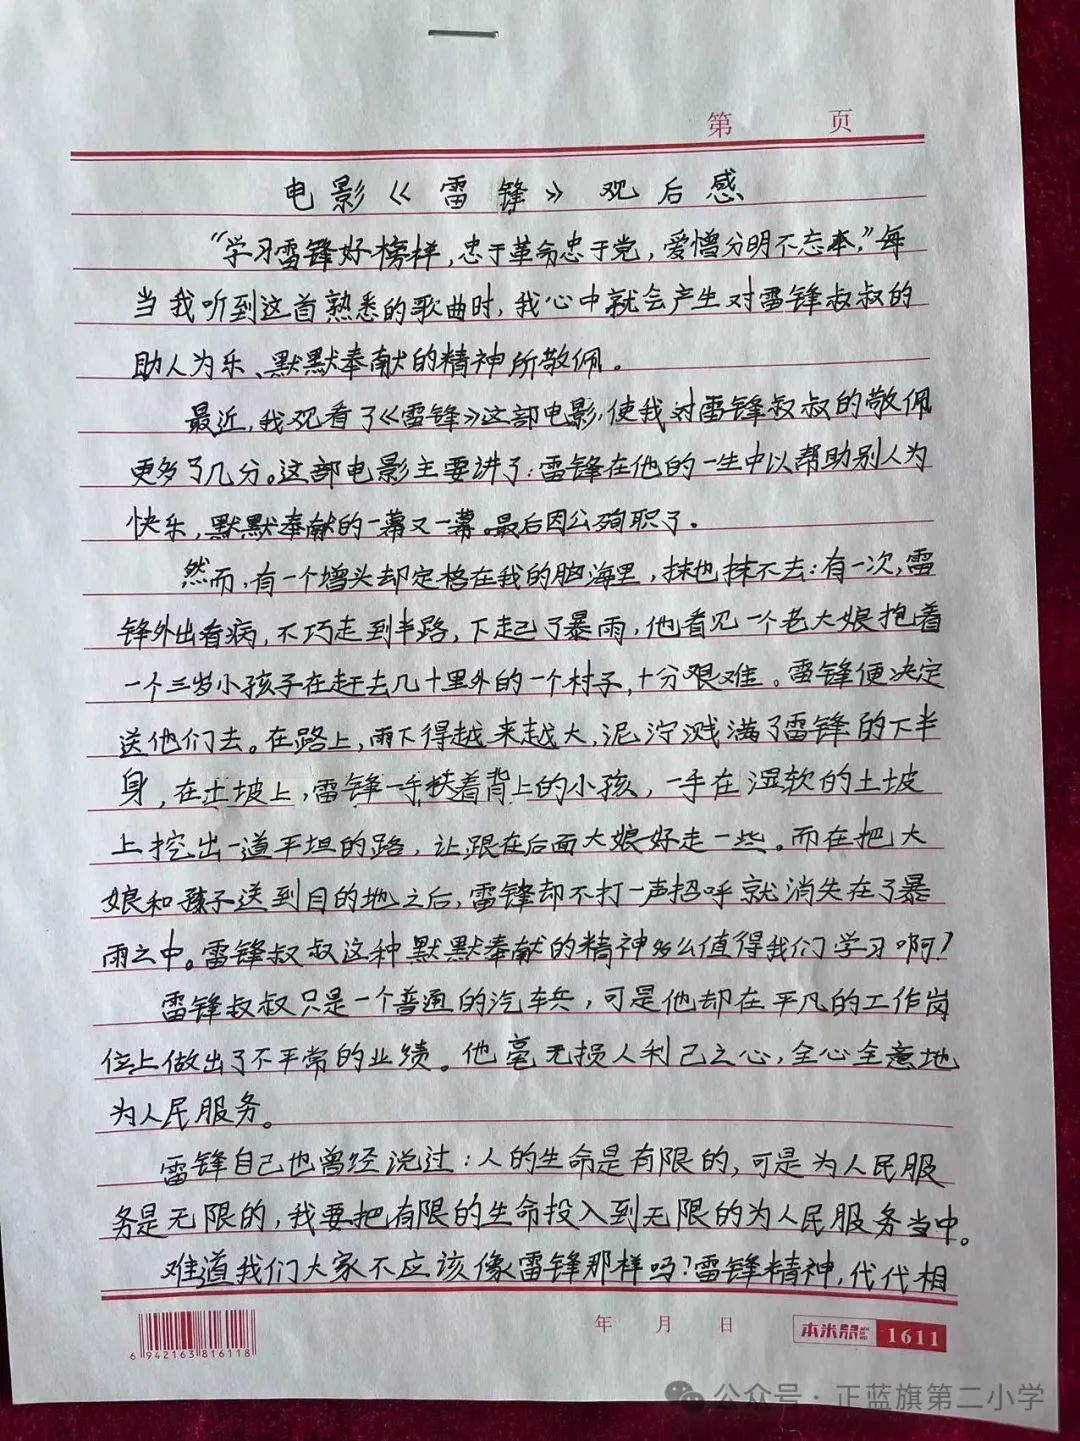 第 页
电影《雷锋》观后感
“学习雷锋好榜样,忠于革命忠于党,爱憎分明不忘本,”每
当我听到这首熟悉的歌曲时,我心中就会产生对雷锋叔叔的
助人为乐、默默奉献的精神所敬佩。
最近,我观看了《雷锋》这部电影,使我对雷锋叔叔的敬佩
更多了几分。这部电影主要讲了:雷锋在他的一生中以帮助别人为
快乐,默默奉献的一幕又一幕。最后因公殉职了.
然而,有一个增头却定格在我的脑海里,抹也抹不去:有一次,雷
锋外出看病,不巧走到半路,下起了暴雨,他看见一个老大娘抱着
一个三岁小孩子在赶去几十里外的一个村子,十分艰难。雷锋便决定
送他们去。在路上,雨下得越来越大,泥泞溅满了雷锋的下半
身,在土坡上,雷锋一手扶着背上的小孩,一手在湿软的土坡
上挖出一道平坦的路,让跟在后面大娘好走一些。而在把大
娘和孩子送到目的地之后,雷锋却不打一声招呼就消失在了暴
雨之中。雷锋叔叔这种默默奉献的精神多么值得我们学习啊?
雷锋叔叔只是一个普通的汽车兵,可是他却在平凡的工作岗
位上做出了不平常的业绩。他毫无损人利己之心,全心全意地
为人民服务。
雷锋自己也曾经说过:人的生命是有限的,可是为人民服
务是无限的,我要把有限的生命投入到无限的为人民服务当中。
难道我们大家不应该像雷锋那样吗?雷锋精神,代代相
6 942163 816118
年 月 日
本米部 1611
公众号·正蓝旗第二小学